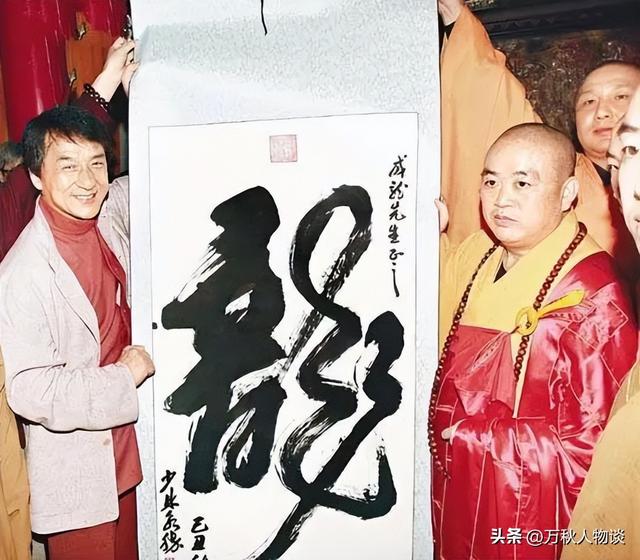 成龙先生正之
龍
己丑
少林永信
头条 @万秋人物谈